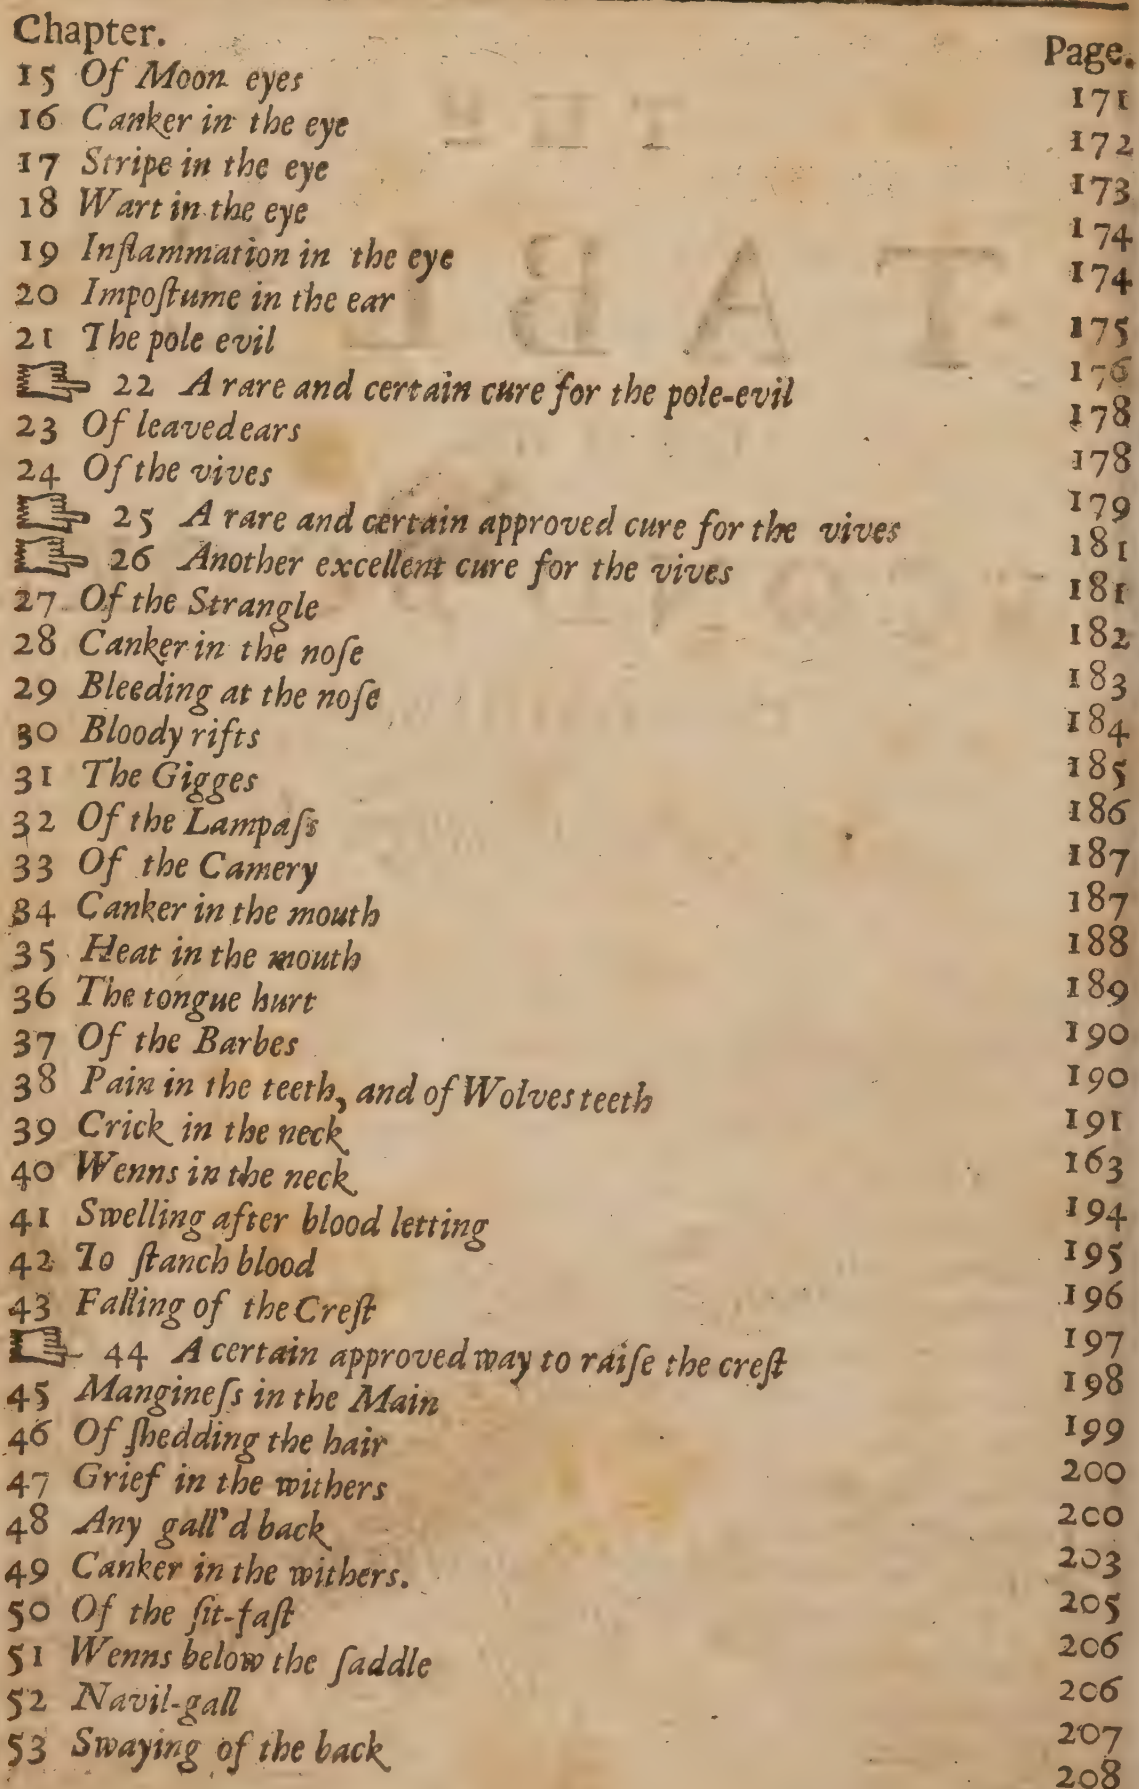 Chapter. Page.
15 Of Moon eyes 171
16 Canker in the eye 172
17 Stripe in the eye 173
18 Wart in the eye 174
19 Inflammation in the eye 174
20 Impoſtume in the ear 175
21 The pole evil 176
☞ 22 A rare and certain cure for the pole-evil 178
23 Of leaved ears 178
24 Of the vives 179
☞ 25 A rare and certain approved cure for the vives 181
☞ 26 Another excellent cure for the vives 181
27 Of the Strangle 182
28 Canker in the noſe 183
29 Bleeding at the noſe 184
30 Bloody rifts 185
31 The Gigges 186
32 Of the Lampaſs 187
33 Of the Camery 187
34 Canker in the mouth 188
35 Heat in the mouth 189
36 The tongue hurt 190
37 Of the Barbes 190
38 Pain in the teeth, and of Wolves teeth 191
39 Crick in the neck 163
40 Wenns in the neck 194
41 Swelling after blood letting 195
42 To ſtanch blood 196
43 Falling of the Creſt 197
☞ 44 A certain approved way to raiſe the creſt 198
45 Mangineſs in the Main 199
46 Of ſhedding the hair 200
47 Grief in the withers 200
48 Any gall'd back 203
49 Canker in the withers. 205
50 Of the ſit-faſt 206
51 Wenns below the ſaddle 206
52 Navil-gall 207
53 Swaying of the back 208